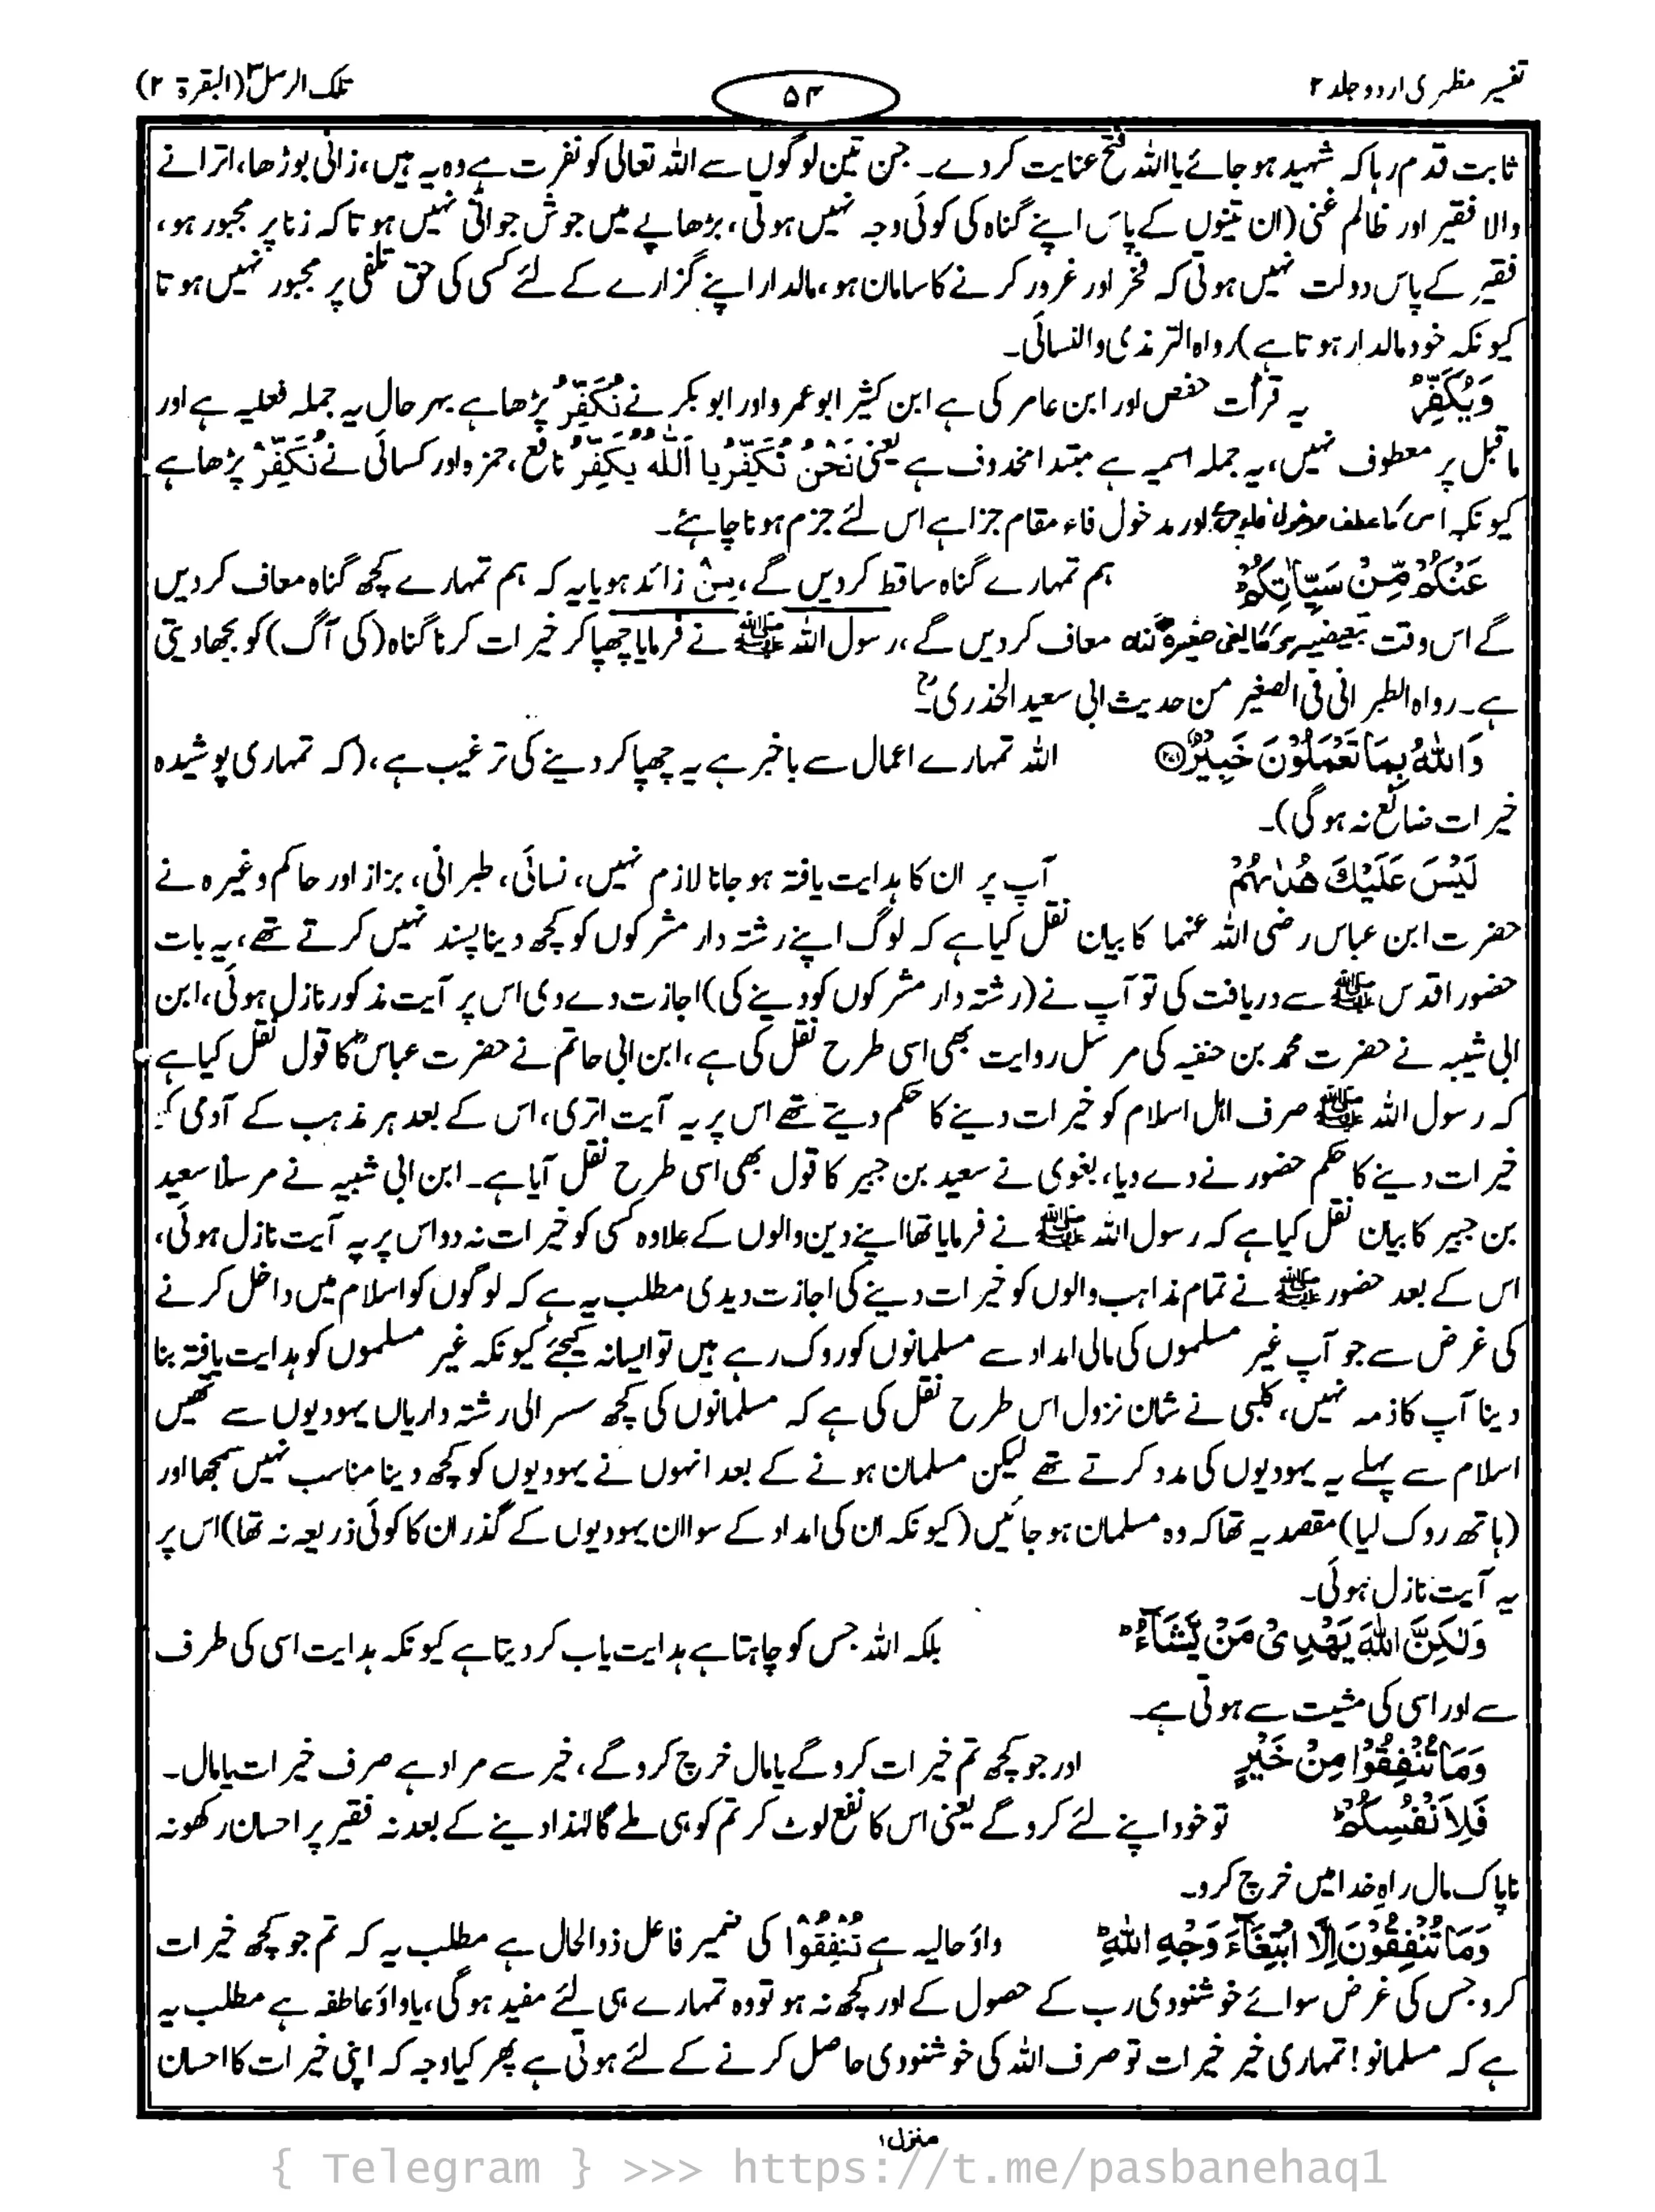 تفسیر مظہری اردو جلد ۲
۵۴
تلک الرسل ۳ (البقرۃ ۲)
ثابت قدم رہا کہ شہید ہو جائے یا اللہ فتح عنایت کر دے۔ جن تین لوگوں سے اللہ تعالیٰ کو نفرت ہے وہ یہ ہیں، زانی بوڑھا، اترانے
والا فقیر اور ظالم غنی (ان تینوں کے پاس اپنے گناہ کی کوئی وجہ نہیں ہوتی، بڑھاپے میں جوش جوانی نہیں ہوتا کہ زنا پر مجبور ہو،
فقیر کے پاس دولت نہیں ہوتی کہ فخر اور غرور کرنے کا سامان ہو، مالدار اپنے گزارے کے لئے کسی کی حق تلفی پر مجبور نہیں ہوتا
کیونکہ خود مالدار ہوتا ہے) رواہ الترمذی والنسائی۔
وَيُكَفِّرُ یہ قرأت حفص اور ابن عامر کی ہے ابن کثیر ابو عمرو اور ابو بکر نے نُكَفِّرُ پڑھا ہے بہر حال یہ جملہ فعلیہ ہے اور
ماقبل پر معطوف نہیں، یہ جملہ اسمیہ ہے مبتدا محذوف ہے یعنی نَحْنُ نُكَفِّرُ یا اَللّٰهُ يُكَفِّرُ نافع، حمزہ اور کسائی نے نُكَفِّرْ پڑھا ہے
کیونکہ اس کا عطف مدخول فاء پر ہے اور مدخول فاء مقام جزا ہے اس لئے جزم ہونا چاہئے۔
عَنْكُمْ مِّنْ سَيِّاٰتِكُمْ ہم تمہارے گناہ ساقط کر دیں گے، مِنْ زائد ہو یا یہ کہ ہم تمہارے کچھ گناہ معاف کر دیں
گے اس وقت تبعیضیہ ہو گا یعنی صغیرہ گناہ معاف کر دیں گے، رسول اللہ ﷺ نے فرمایا چھپا کر خیرات کرنا گناہ (کی آگ) کو بجھا دیتی
ہے۔ رواہ الطبرانی فی الصغیر من حدیث ابی سعید الخذریؓ۔
وَاللّٰهُ بِمَا تَعْمَلُوْنَ خَبِيْرٌ اللہ تمہارے اعمال سے باخبر ہے یہ چھپا کر دینے کی ترغیب ہے، (کہ تمہاری پوشیدہ
خیرات ضائع نہ ہو گی)۔
لَيْسَ عَلَيْكَ هُدٰىهُمْ آپ پر ان کا ہدایت یافتہ ہو جانا لازم نہیں، نسائی، طبرانی، بزاز اور حاکم وغیرہ نے
حضرت ابن عباس رضی اللہ عنہما کا بیان نقل کیا ہے کہ لوگ اپنے رشتہ دار مشرکوں کو کچھ دینا پسند نہیں کرتے تھے، یہ بات
حضور اقدس ﷺ سے دریافت کی تو آپ نے (رشتہ دار مشرکوں کو دینے کی) اجازت دے دی اس پر آیت مذکور نازل ہوئی، ابن
ابی شیبہ نے حضرت محمد بن حنفیہ کی مرسل روایت بھی اسی طرح نقل کی ہے، ابن ابی حاتم نے حضرت عباسؓ کا قول نقل کیا ہے
کہ رسول اللہ ﷺ صرف اہل اسلام کو خیرات دینے کا حکم دیتے تھے اس پر یہ آیت اتری، اس کے بعد ہر مذہب کے آدمی کو
خیرات دینے کا حکم حضور نے دے دیا، بغوی نے سعید بن جبیر کا قول بھی اسی طرح نقل آیا ہے۔ ابن ابی شیبہ نے مرسلاً سعید
بن جبیر کا بیان نقل کیا ہے کہ رسول اللہ ﷺ نے فرمایا تھا اپنے دین والوں کے علاوہ کسی کو خیرات نہ دو اس پر یہ آیت نازل ہوئی،
اس کے بعد حضور ﷺ نے تمام مذاہب والوں کو خیرات دینے کی اجازت دیدی مطلب یہ ہے کہ لوگوں کو اسلام میں داخل کرنے
کی غرض سے جو آپ غیر مسلموں کی مالی امداد سے مسلمانوں کو روک رہے ہیں تو ایسا نہ کیجئے کیونکہ غیر مسلموں کو ہدایت یافتہ بنا
دینا آپ کا ذمہ نہیں، کلبی نے شان نزول اس طرح نقل کی ہے کہ مسلمانوں کی کچھ سسرالی رشتہ داریاں یہودیوں سے تھیں
اسلام سے پہلے یہ یہودیوں کی مدد کرتے تھے لیکن مسلمان ہونے کے بعد انہوں نے یہودیوں کو کچھ دینا مناسب نہیں سمجھا اور
(ہاتھ روک لیا) مقصد یہ تھا کہ وہ مسلمان ہو جائیں (کیونکہ ان کی امداد کے سوا ان یہودیوں کے گذران کا کوئی ذریعہ نہ تھا) اس پر
یہ آیت نازل ہوئی۔
وَلٰكِنَّ اللّٰهَ يَهْدِىْ مَنْ يَّشَآءُ ؕ بلکہ اللہ جس کو چاہتا ہے ہدایت یاب کر دیتا ہے کیونکہ ہدایت اسی کی طرف
سے اور اسی کی مشیت سے ہوتی ہے۔
وَمَا تُنْفِقُوْا مِنْ خَيْرٍ اور جو کچھ تم خیرات کرو گے یا مال خرچ کرو گے، خیر سے مراد ہے صرف خیرات یا مال۔
فَلِاَنْفُسِكُمْ ؕ تو خود اپنے لئے کرو گے یعنی اس کا نفع لوٹ کر تم کو ہی ملے گا لہٰذا دینے کے بعد نہ فقیر پر احسان رکھو نہ
ناپاک مال راہِ خدا میں خرچ کرو۔
وَمَا تُنْفِقُوْنَ اِلَّا ابْتِغَآءَ وَجْهِ اللّٰهِ ؕ واؤ حالیہ ہے تُنْفِقُوْا کی ضمیر فاعل ذوالحال ہے مطلب یہ کہ تم جو کچھ خیرات
کرو جس کی غرض سوائے خوشنودی رب کے حصول کے اور کچھ نہ ہو تو وہ تمہارے ہی لئے مفید ہو گی، یا واؤ عاطفہ ہے مطلب یہ
ہے کہ مسلمانو! تمہاری خیر خیرات تو صرف اللہ کی خوشنودی حاصل کرنے کے لئے ہوتی ہے پھر کیا وجہ کہ اپنی خیرات کا احسان
منزل ۱
{ Telegram } >>> https://t.me/pasbanehaq1